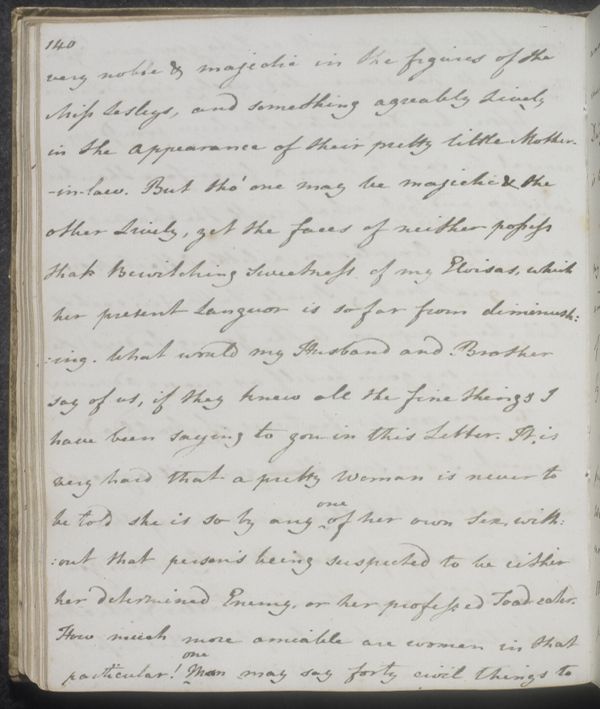 140
very noble & majestic in the figures of the
Miss Lesleys, and something agreably Lively
in the appearance of their pretty little Mother-
-in-law. But tho' one may be majestic & the
other Lively, yet the faces of neither possess
that Bewitching Sweetness of my Eloisas, which
her present Languor is so far from diminush:
:ing. What would my Husband and Brother
say of us, if they knew all the fine things I
have been saying to you in this Letter. It is
very hard that a pretty Woman is never to
be told she is so by any one of her own Sex, with:
:out that person's being suspected to be either
her determined Enemy, or her professed Toad-eater.
How much more amiable are women in that
particular! one Man may say forty civil things to